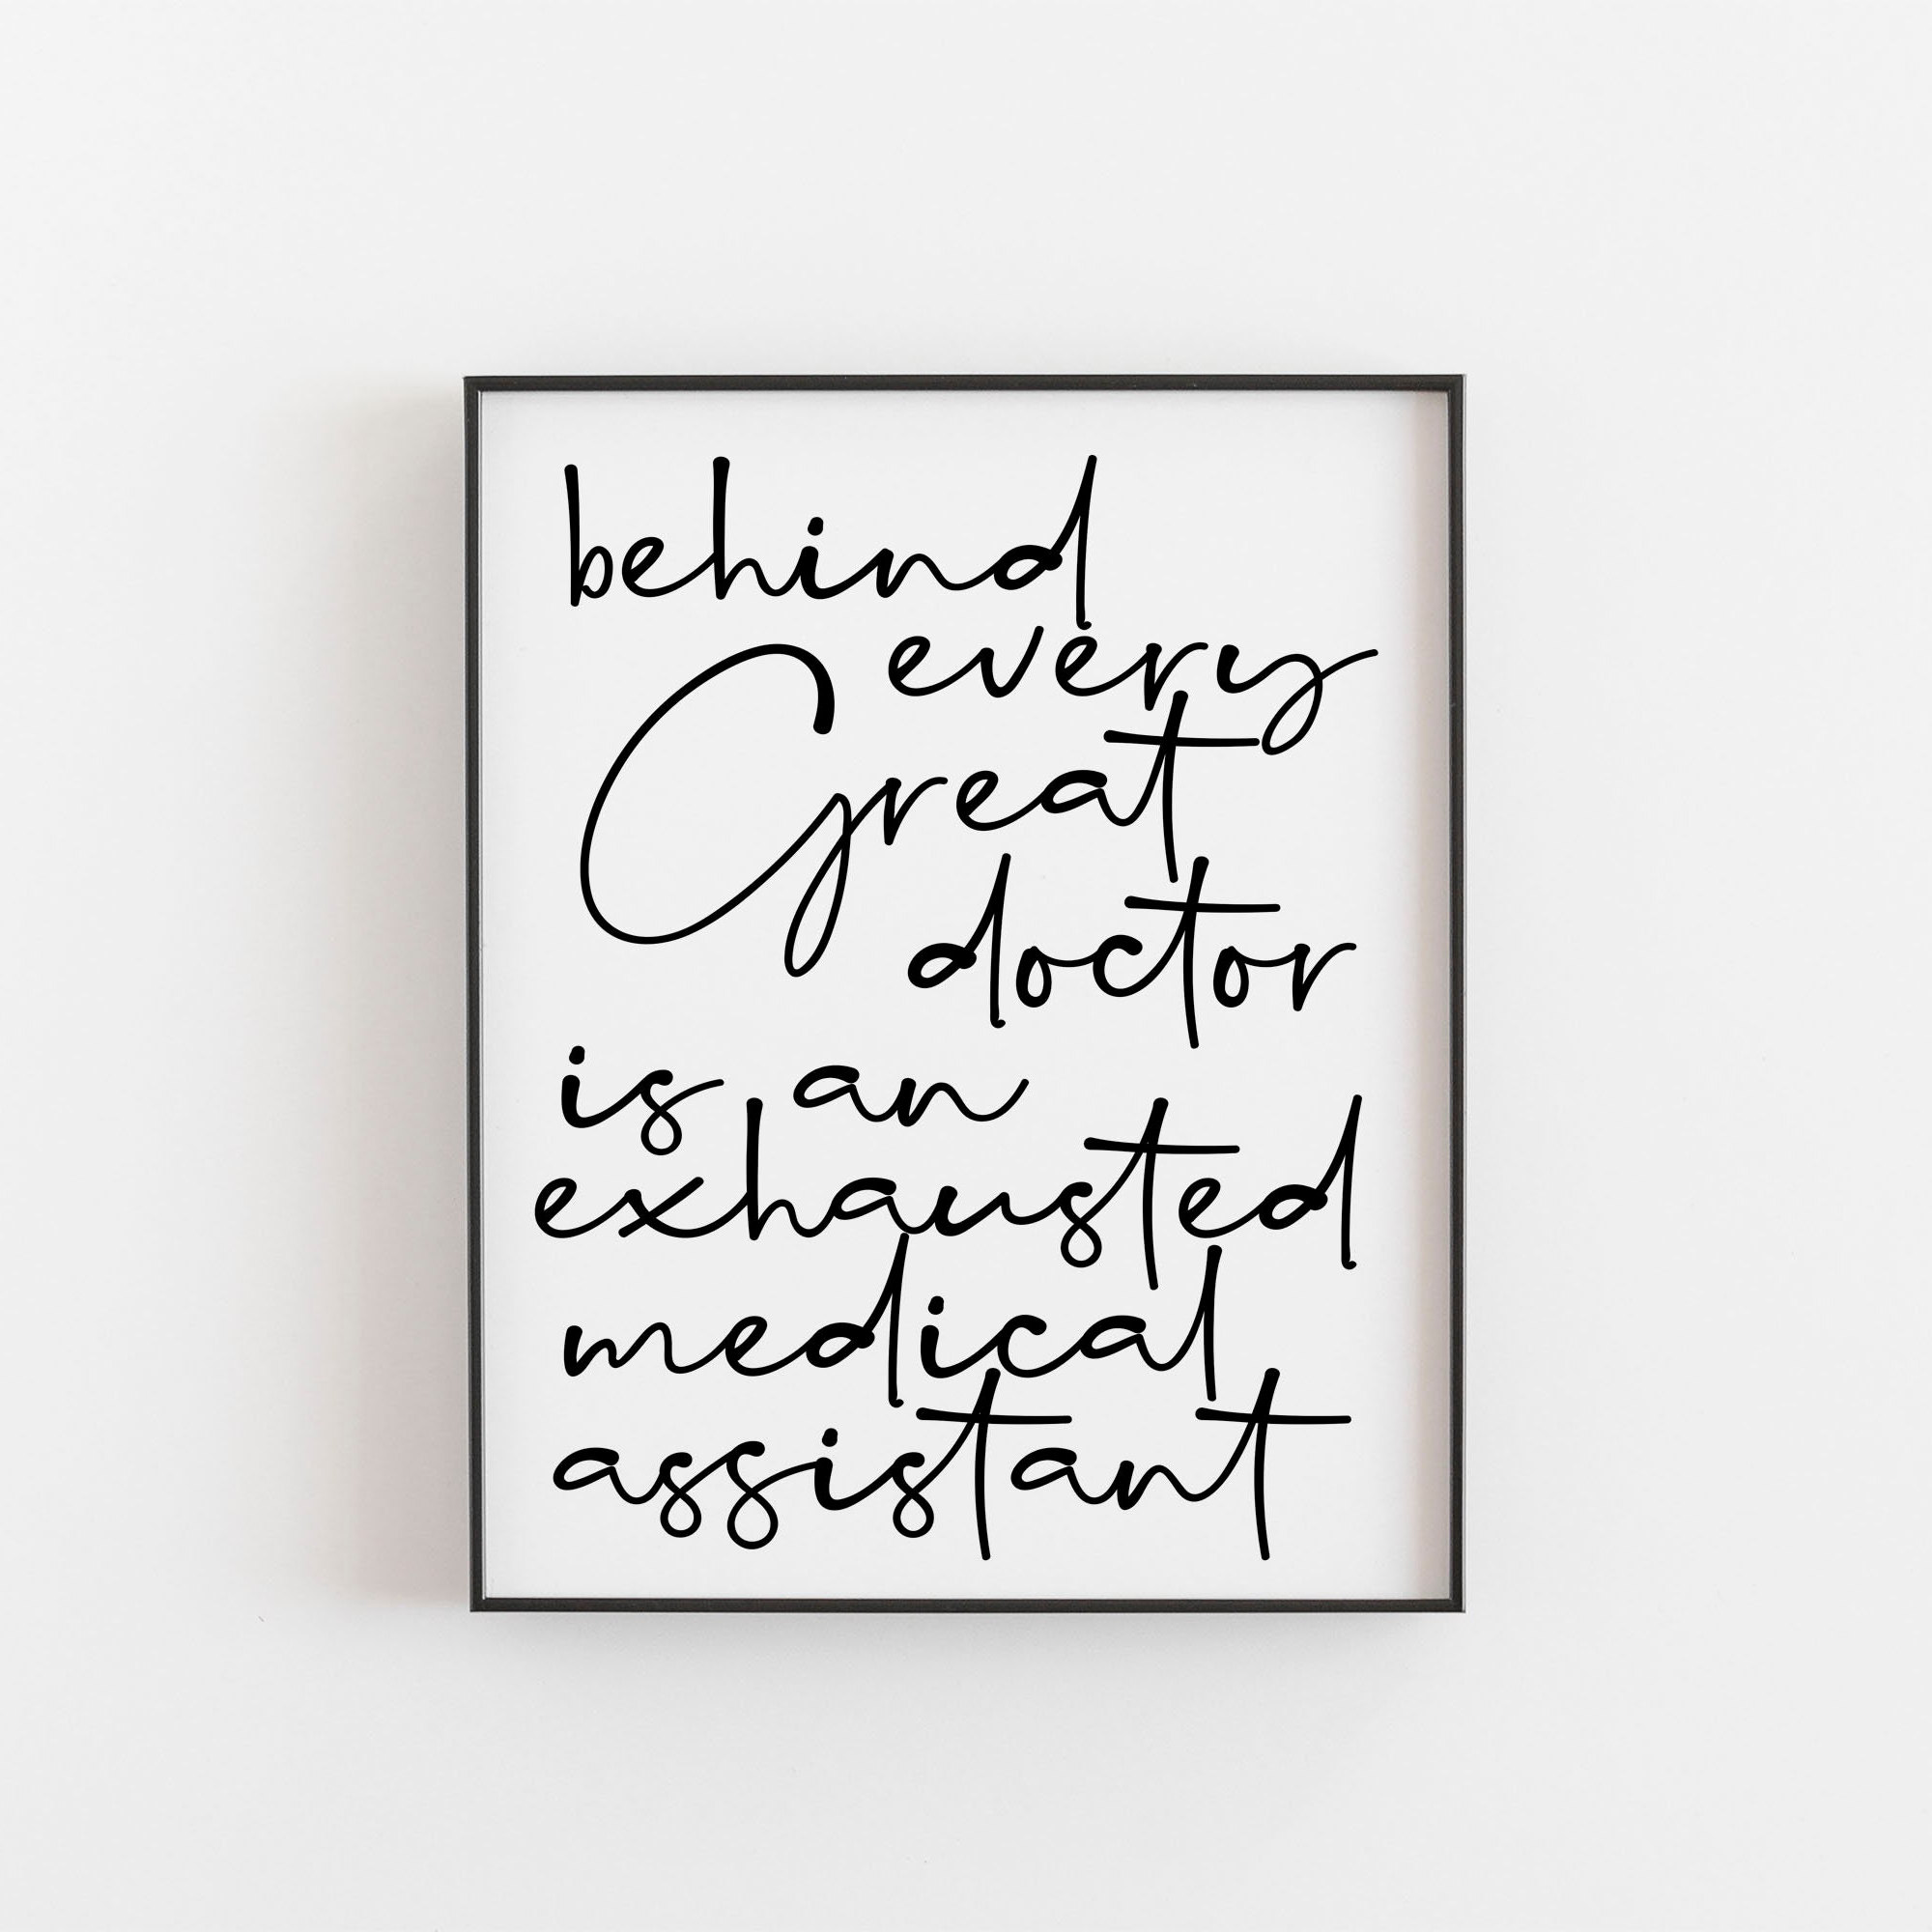 behind
every
Great
doctor
is an
exhausted
medical
assistant